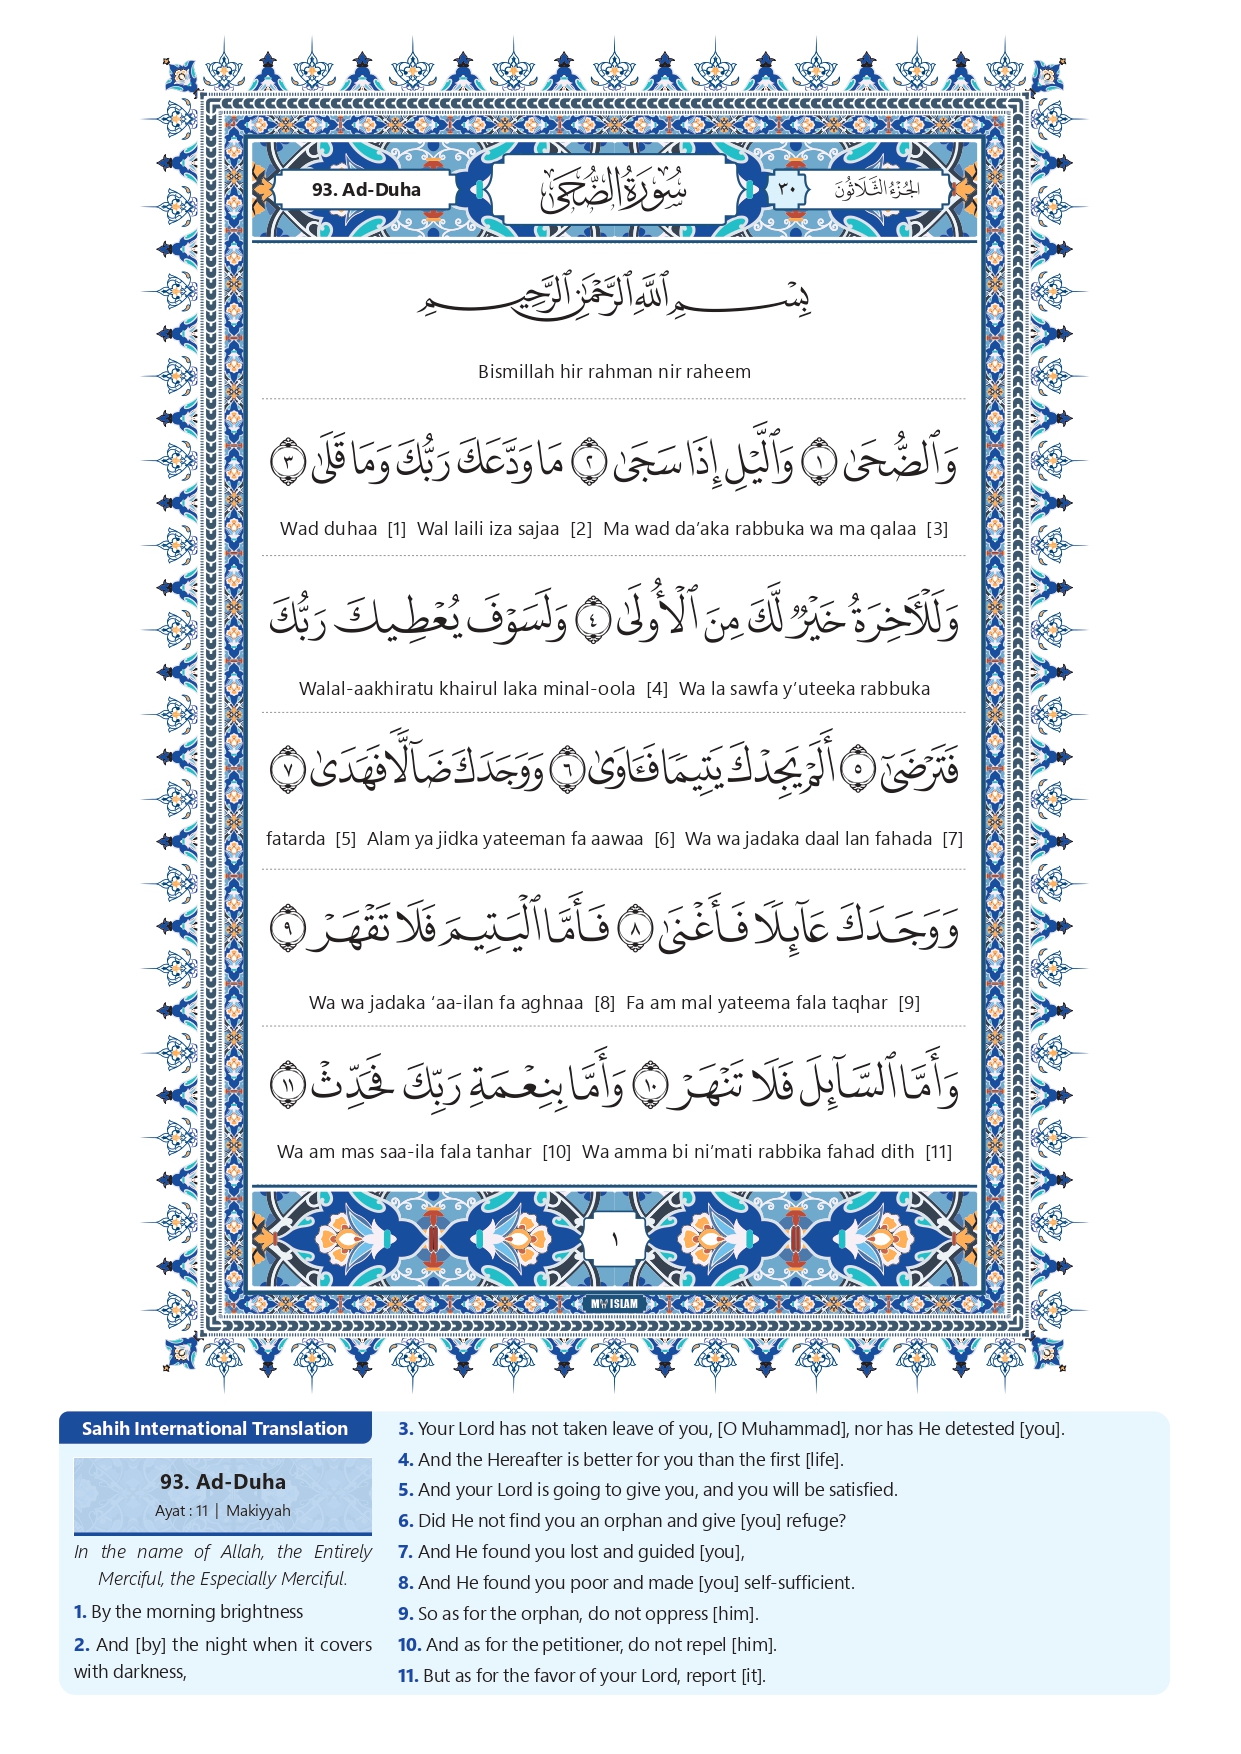 93. Ad-Duha
سُورَةُ الضُّحَىٰ
٣٠
الجُزْءُ الثَّلَاثُونَ
بِسْمِ ٱللَّهِ ٱلرَّحْمَٰنِ ٱلرَّحِيمِ
Bismillah hir rahman nir raheem
وَٱلضُّحَىٰ ١ وَٱلَّيْلِ إِذَا سَجَىٰ ٢ مَا وَدَّعَكَ رَبُّكَ وَمَا قَلَىٰ ٣
Wad duhaa [1] Wal laili iza sajaa [2] Ma wad da’aka rabbuka wa ma qalaa [3]
وَلَلْـَٔاخِرَةُ خَيْرٌ لَّكَ مِنَ ٱلْأُولَىٰ ٤ وَلَسَوْفَ يُعْطِيكَ رَبُّكَ
Walal-aakhiratu khairul laka minal-oola [4] Wa la sawfa y’uteeka rabbuka
فَتَرْضَىٰٓ ٥ أَلَمْ يَجِدْكَ يَتِيمًا فَـَٔاوَىٰ ٦ وَوَجَدَكَ ضَآلًّا فَهَدَىٰ ٧
fatarda [5] Alam ya jidka yateeman fa aawaa [6] Wa wa jadaka daal lan fahada [7]
وَوَجَدَكَ عَآئِلًا فَأَغْنَىٰ ٨ فَأَمَّا ٱلْيَتِيمَ فَلَا تَقْهَرْ ٩
Wa wa jadaka ‘aa-ilan fa aghnaa [8] Fa am mal yateema fala taqhar [9]
وَأَمَّا ٱلسَّآئِلَ فَلَا تَنْهَرْ ١٠ وَأَمَّا بِنِعْمَةِ رَبِّكَ فَحَدِّثْ ١١
Wa am mas saa-ila fala tanhar [10] Wa amma bi ni’mati rabbika fahad dith [11]
١
MY ISLAM
Sahih International Translation
93. Ad-Duha
Ayat : 11 | Makiyyah
In the name of Allah, the Entirely
Merciful, the Especially Merciful.
1. By the morning brightness
2. And [by] the night when it covers
with darkness,
3. Your Lord has not taken leave of you, [O Muhammad], nor has He detested [you].
4. And the Hereafter is better for you than the first [life].
5. And your Lord is going to give you, and you will be satisfied.
6. Did He not find you an orphan and give [you] refuge?
7. And He found you lost and guided [you],
8. And He found you poor and made [you] self-sufficient.
9. So as for the orphan, do not oppress [him].
10. And as for the petitioner, do not repel [him].
11. But as for the favor of your Lord, report [it].